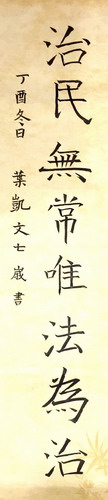 治民無常唯法為治
丁酉冬日
葉凱文七歲書